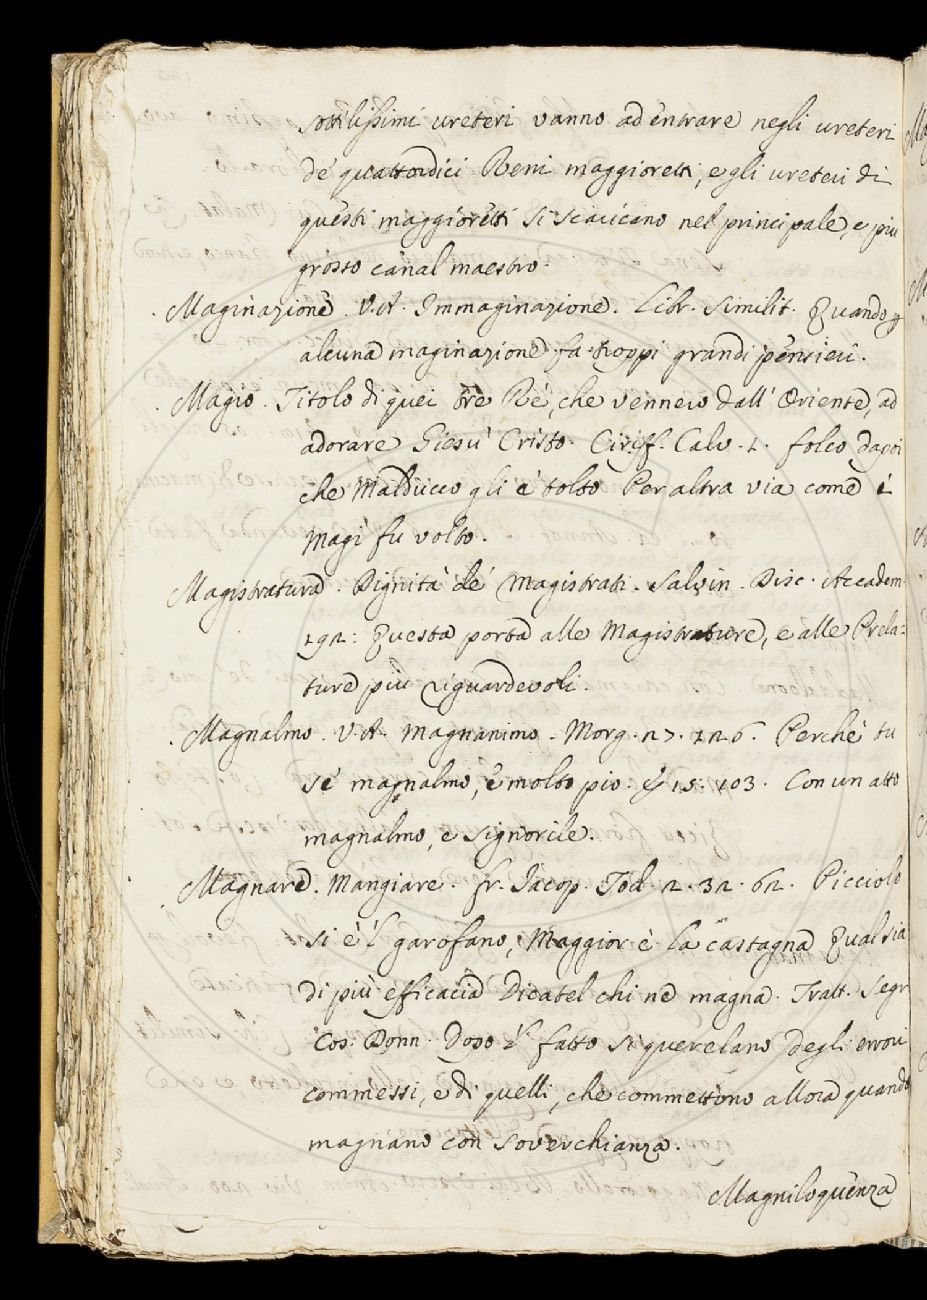 sottilissimi ureteri vanno ad entrare negli ureteri
de' quattordici Reni maggioretti, e gli ureteri di
questi maggioretti si scaricano nel principale, e più
grosso canal maestro.
Maginazione. V.A. Immaginazione. Libr. Similit. Quando
alcuna maginazione fa troppi grandi pensieri.
Magio. Titolo di quei tre Rè, che vennero dall' Oriente, ad
adorare Giesù Cristo. Ciriff. Calv. 1. folco dapoi
che Malducco gli è tolto Per altra via come i
Magi fu volto.
Magistratura. Dignità de' Magistrati. Salvin. Disc. Accadem.
192: Questa porta alle Magistrature, e alle Prela-
ture più riguardevoli.
Magnalmo. V.A. Magnanimo. Morg. 27. 126. Perchè tu
se' magnalmo, e molto pio. E 15. 103. Con un atto
magnalmo, e Signorile.
Magnare. Mangiare. fr. Jacop. Tod. 2. 32. 62. Picciolo
si è 'l garofano, Maggior è la castagna Qual sia
di più efficacia Dicatel chi ne magna. Tratt. Segr.
Cos. Donn. Dopo 'l fatto si querelano degli errori
commessi, e di quelli, che commettono allora quando
magnano con soverchianza.
Magniloquenza